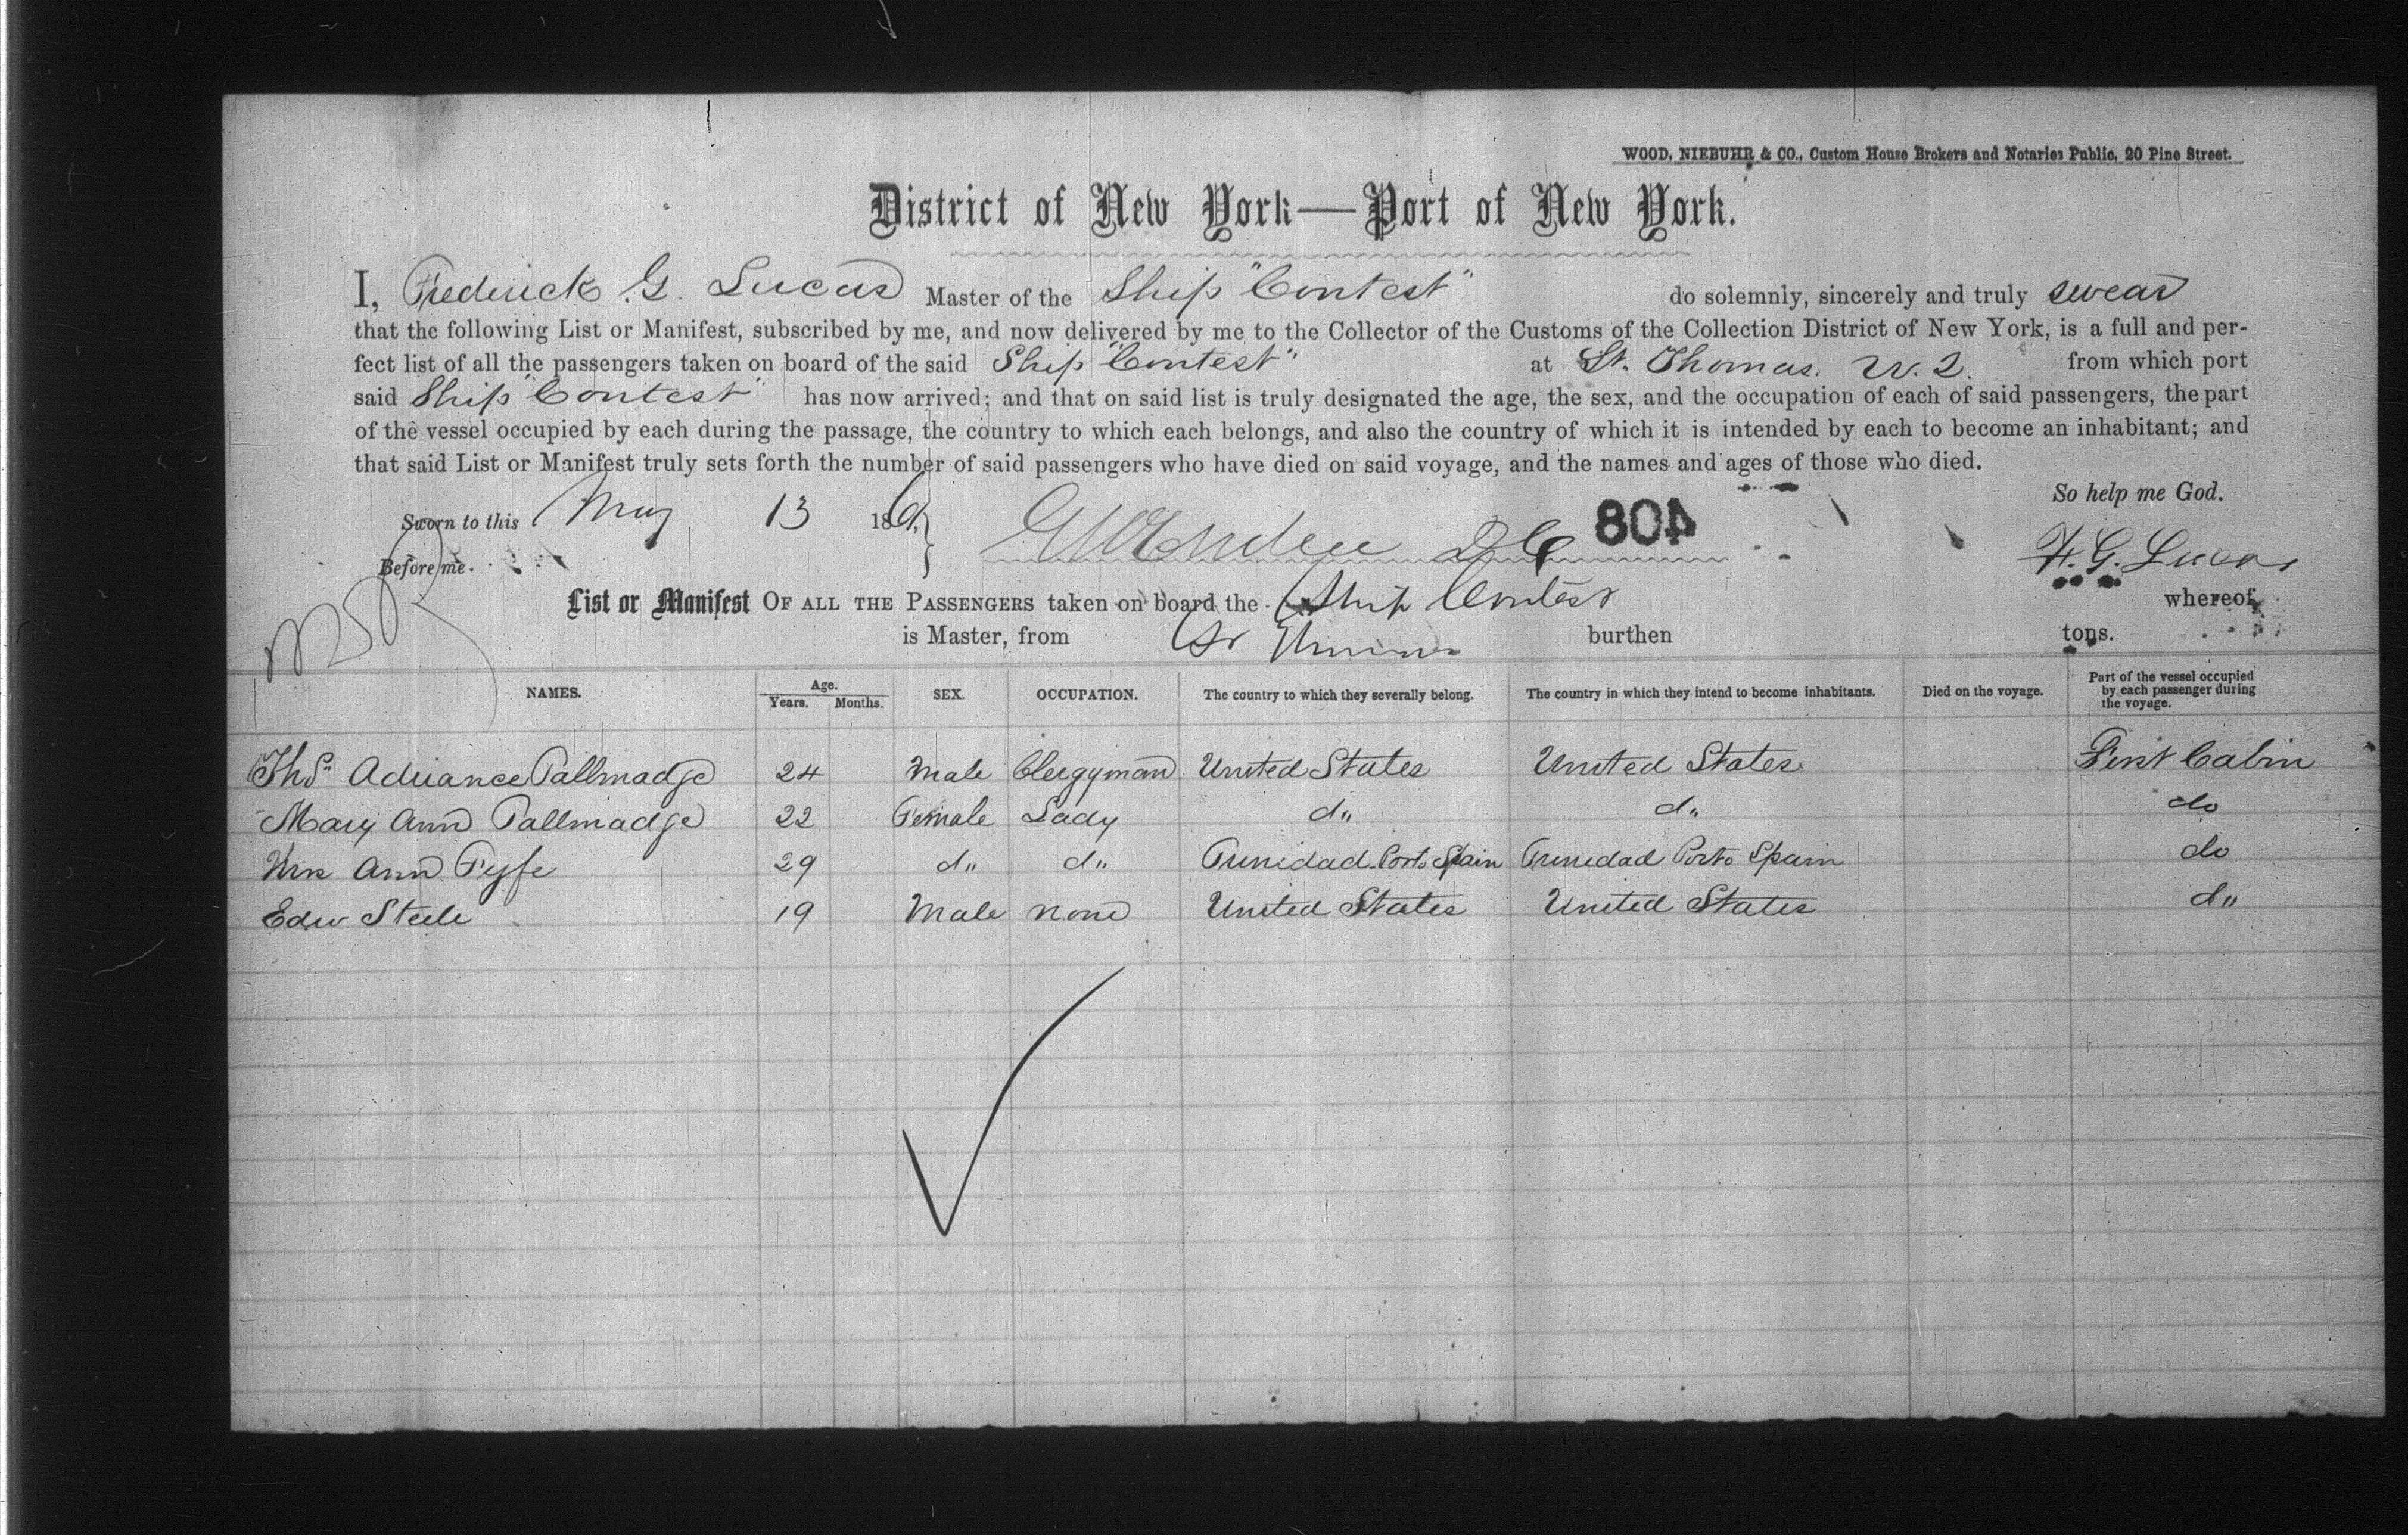 WOOD, NIEBUHR & CO., Custom House Brokers and Notaries Public, 20 Pine Street.
District of New York—Port of New York.
I, Frederick G. Lucas Master of the Ship "Contest" do solemnly, sincerely and truly swear
that the following List or Manifest, subscribed by me, and now delivered by me to the Collector of the Customs of the Collection District of New York, is a full and per-
fect list of all the passengers taken on board of the said Ship "Contest" at St. Thomas. W. I. from which port
said Ship "Contest" has now arrived; and that on said list is truly designated the age, the sex, and the occupation of each of said passengers, the part
of the vessel occupied by each during the passage, the country to which each belongs, and also the country of which it is intended by each to become an inhabitant; and
that said List or Manifest truly sets forth the number of said passengers who have died on said voyage, and the names and ages of those who died.
So help me God.
Sworn to this May 13 186
804
Before me.
F. G. Lucas
List or Manifest OF ALL THE PASSENGERS taken on board the Ship Contest whereof
is Master, from St Thomas burthen tons.
NAMES. Age. Years. Months. SEX. OCCUPATION. The country to which they severally belong. The country in which they intend to become inhabitants. Died on the voyage. Part of the vessel occupied by each passenger during the voyage.
Thos. Adriance Tallmadge 24 Male Clergyman United States United States First Cabin
Mary Ann Tallmadge 22 Female Lady d" d" do
Mrs Ann Fyfe 29 d" d" Trinidad Porto Spain Trinidad Porto Spain do
Edw Steele 19 Male none United States United States d"